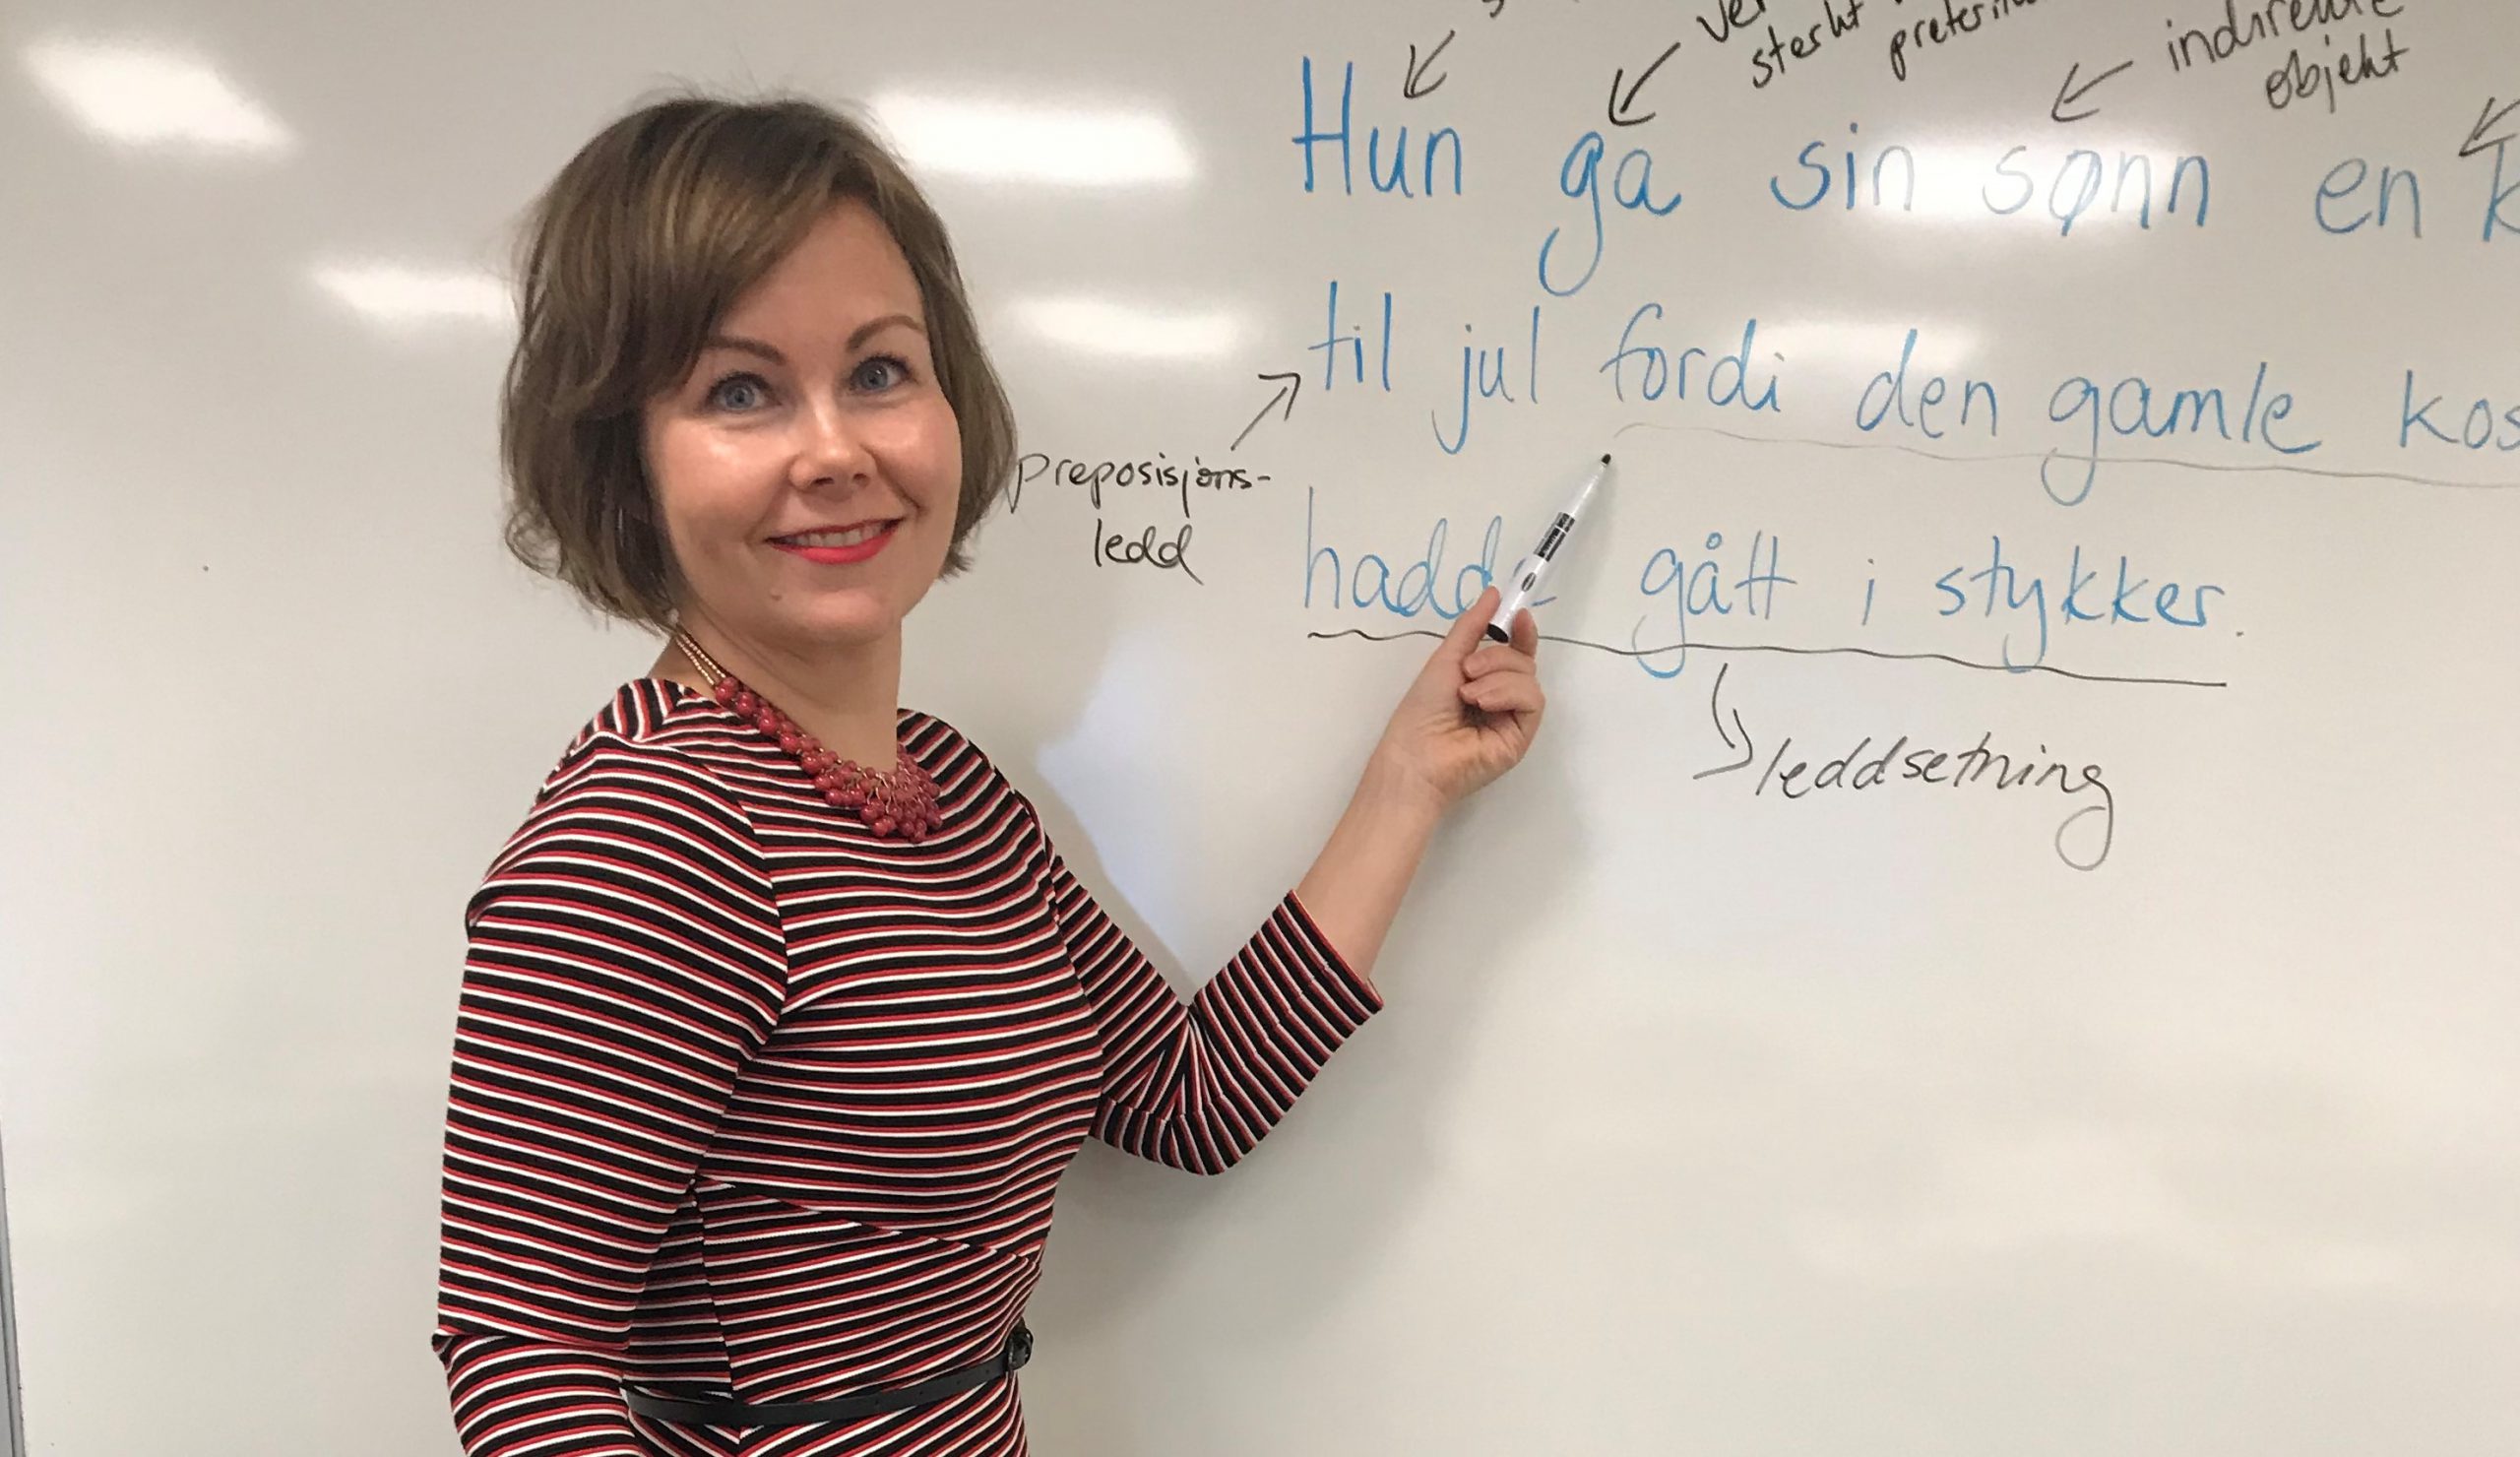 sterkt
indirekte
objekt
Hun ga sin sønn en
til jul fordi den gamle
preposisjons-
ledd
hadde gått i stykker.
leddsetning